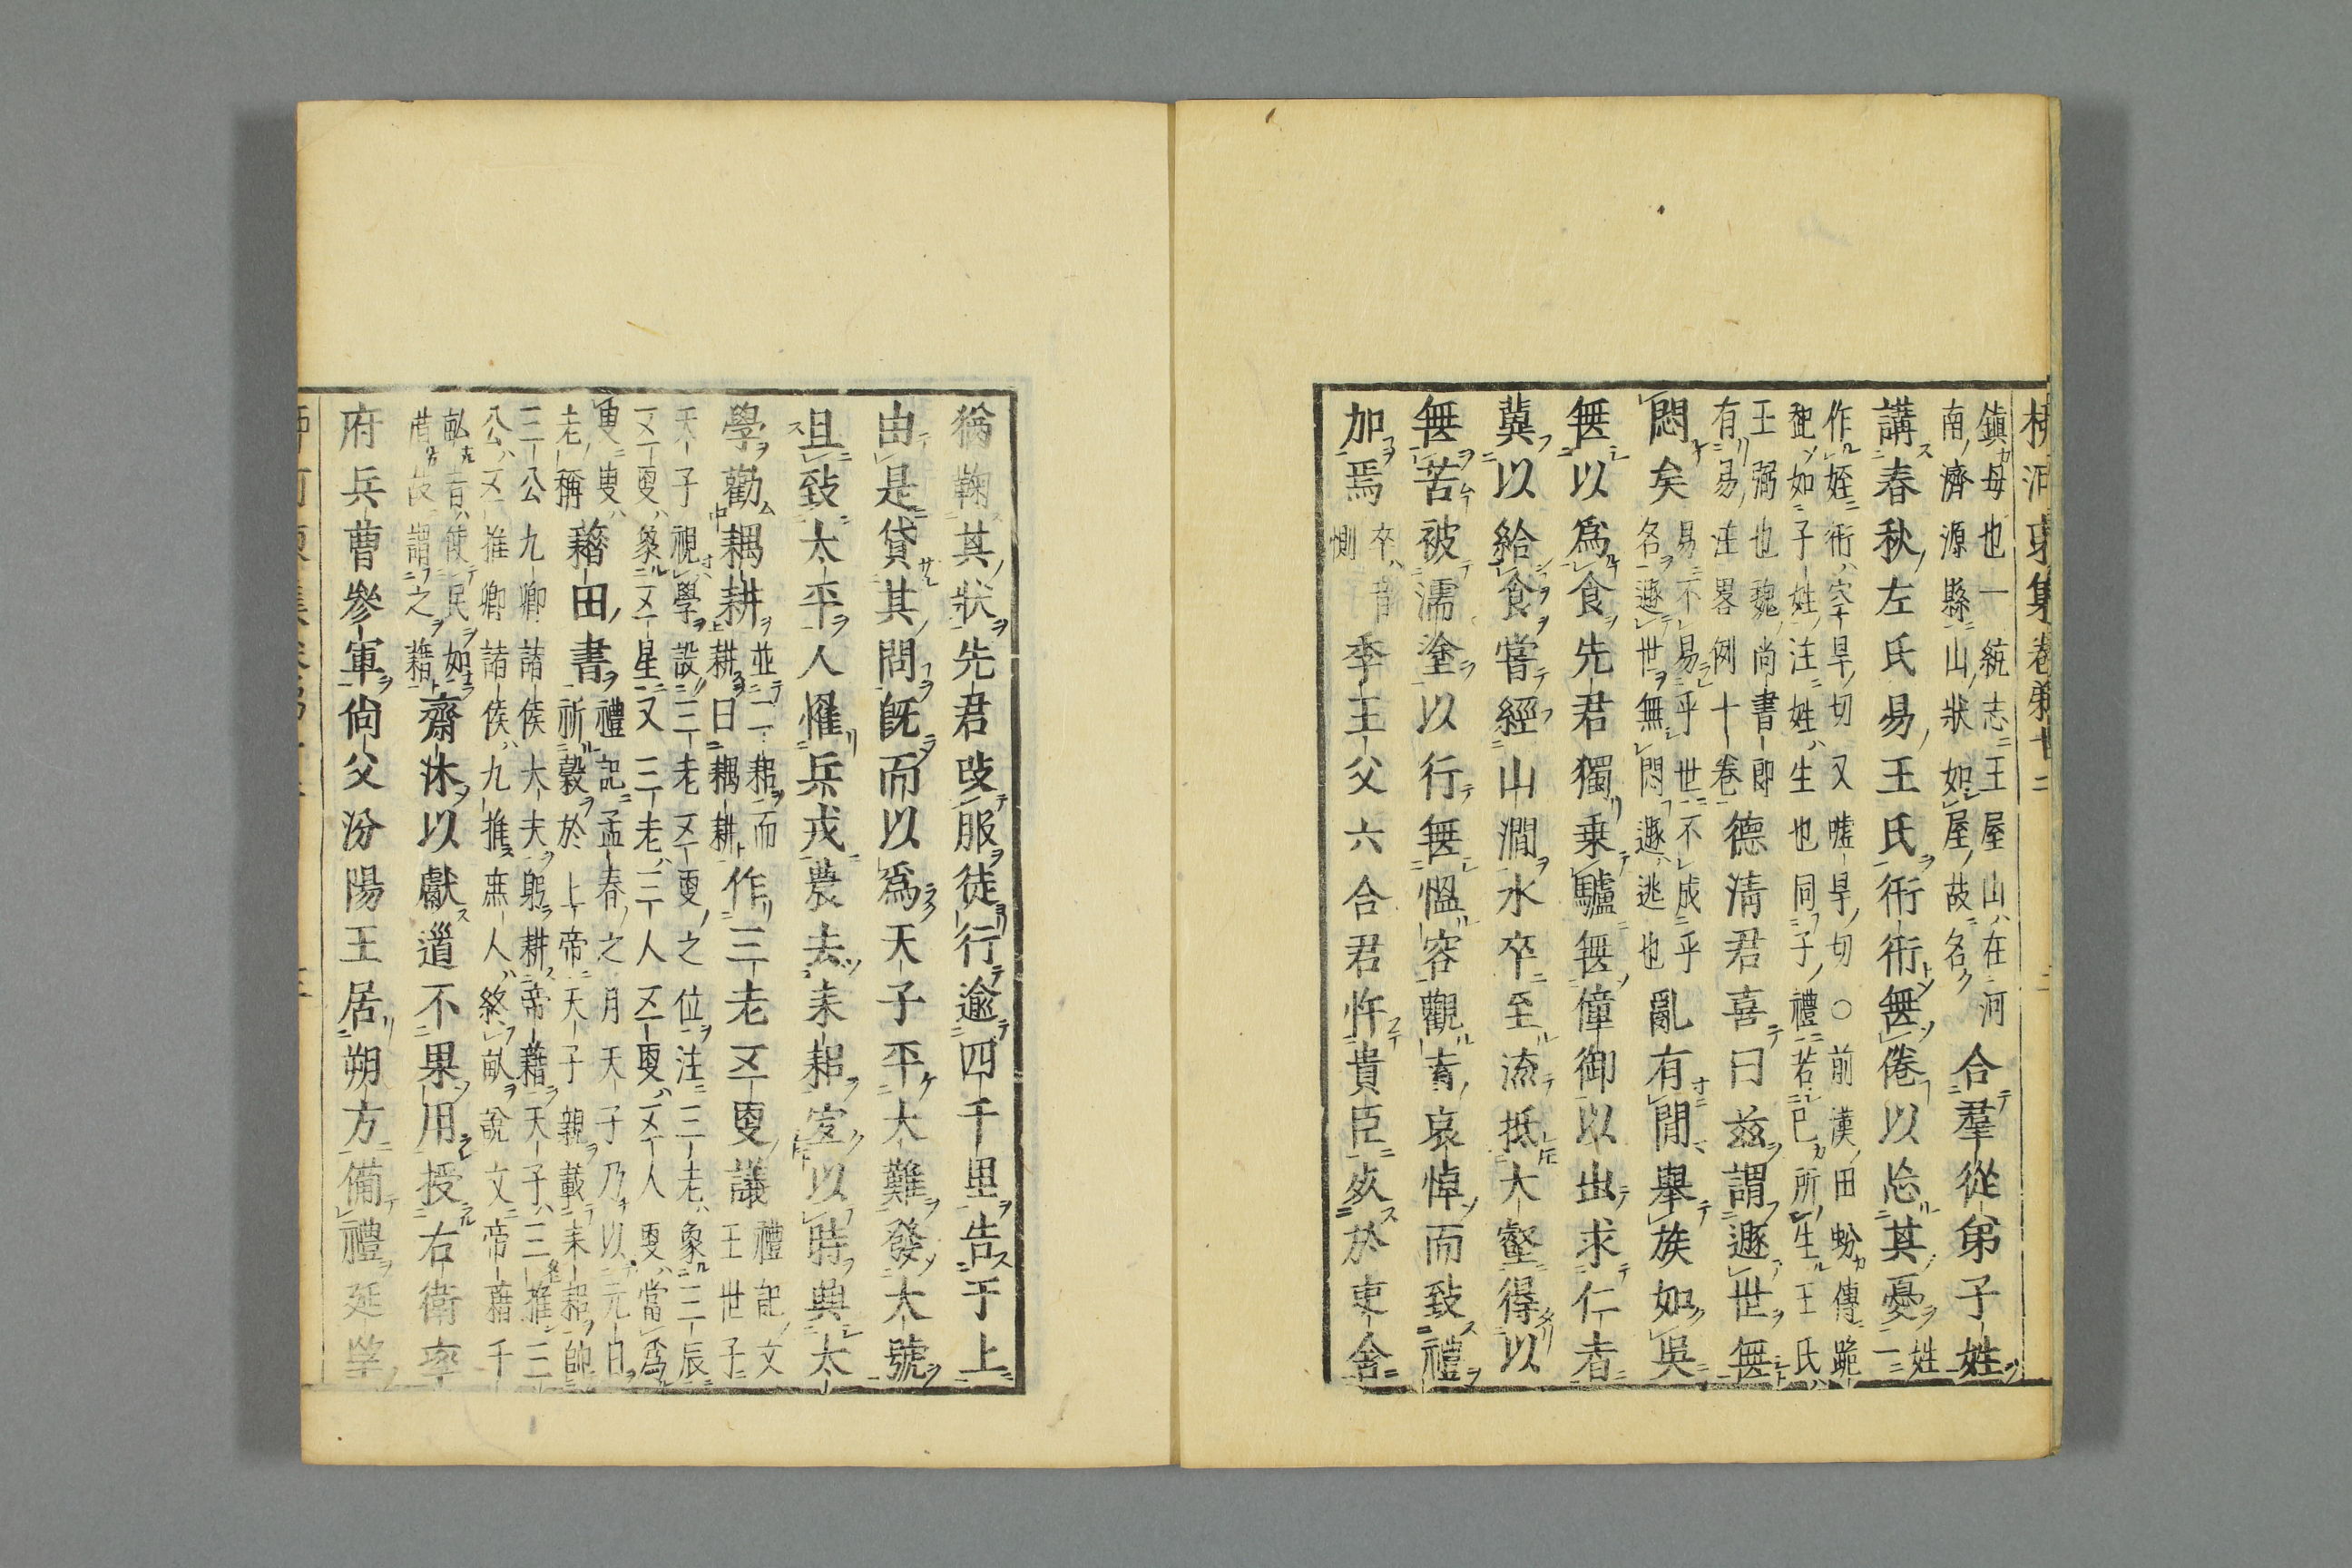 柳河東集卷第十二
鎮母也一統志王屋山在河
南濟源縣山狀如屋故名
合羣從弟子姓
講春秋左氏易王氏衎衎無倦以忘其憂
姓一
作姪衎空旱切又嘘旱切○前漢田蚡傳跪
起如子姓注姓生也同子禮若已所生王氏
王弼也魏尚書即
有易注畧例十卷
德清君喜曰茲謂遯世無
悶矣
易不易乎世不成乎
名遯世無悶遯逃也
亂有閒舉族如吳
無以爲食先君獨乗驢無僮御以出求仁者
冀以給食嘗經山澗水卒至流抵大壑得以
無苦被濡塗以行無慍容觀者哀悼而致禮
加焉
卒音
惻
季王父六合君忤貴臣死於吏舍
猶鞠其狀先君改服徒行逾四千里告于上
由是貸其問旣而以爲天子平大難發大號
且致太平人罹兵戎農去耒耜宜以時興太
學勸耦耕
並二耜而
耕曰耦耕
作三老五更議
禮記文
王世子
天子視學設三老五更之位注三老象三辰
五更象五星又三老三人五更五人更當爲
叟叟
老稱
藉田書
禮記孟春之月天子乃以元日
祈穀於上帝天子親載耒耜帥
三公九卿諸侯大夫躬耕帝藉天子三推三
公五推卿諸侯九推庶人終畝說文帝藉千
畝者使民如
借故謂之藉
齋沐以獻道不果用授右衛率
府兵曹參軍尙父汾陽王居朔方備禮延望